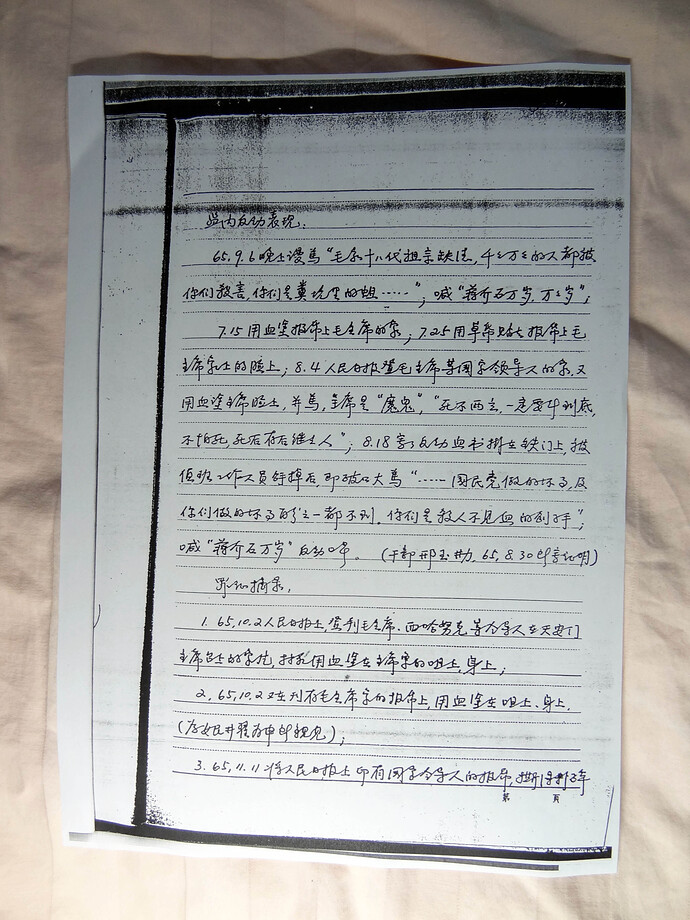 监内反动表现:
65.9.6晚上谩骂“毛家十八代祖宗缺德,千千万万的人都被
你们毅害,你们是粪坑里的蛆……”;喊“蒋介石万岁,万万岁”;
7.15用血塗报纸上毛主席的象;7.25用草纸贴在报纸上毛
主席象上的脸上;8.4人民日报登毛主席等国家领导人的象,又
用血塗主席脸上,并骂,主席是“魔鬼”,“死不两立,一定要斗到底,
不怕死,死后有后继之人”;8.18写反动血书掛在铁门上,被
值班工作人员 掉后即破口大骂“……国民党做的坏事,及
你们做的坏事的 之一都不到,你们是杀人不见血的刽子手”;
喊“蒋介石万岁”反动口号。(干部邢玉 65.8.30 证明)
罪证摘录,
1.65,10.2人民日报上,登刊毛主席、西哈努克等领导人在天安门
主席台上的象片, 用血塗在主席象的咀上,身上;
2,65,10.2又在刊有毛主席象的报纸上,用血塗在咀上、身上.
3.65,11.11将人民日报上印有国家领导人的报纸,撕
第 页